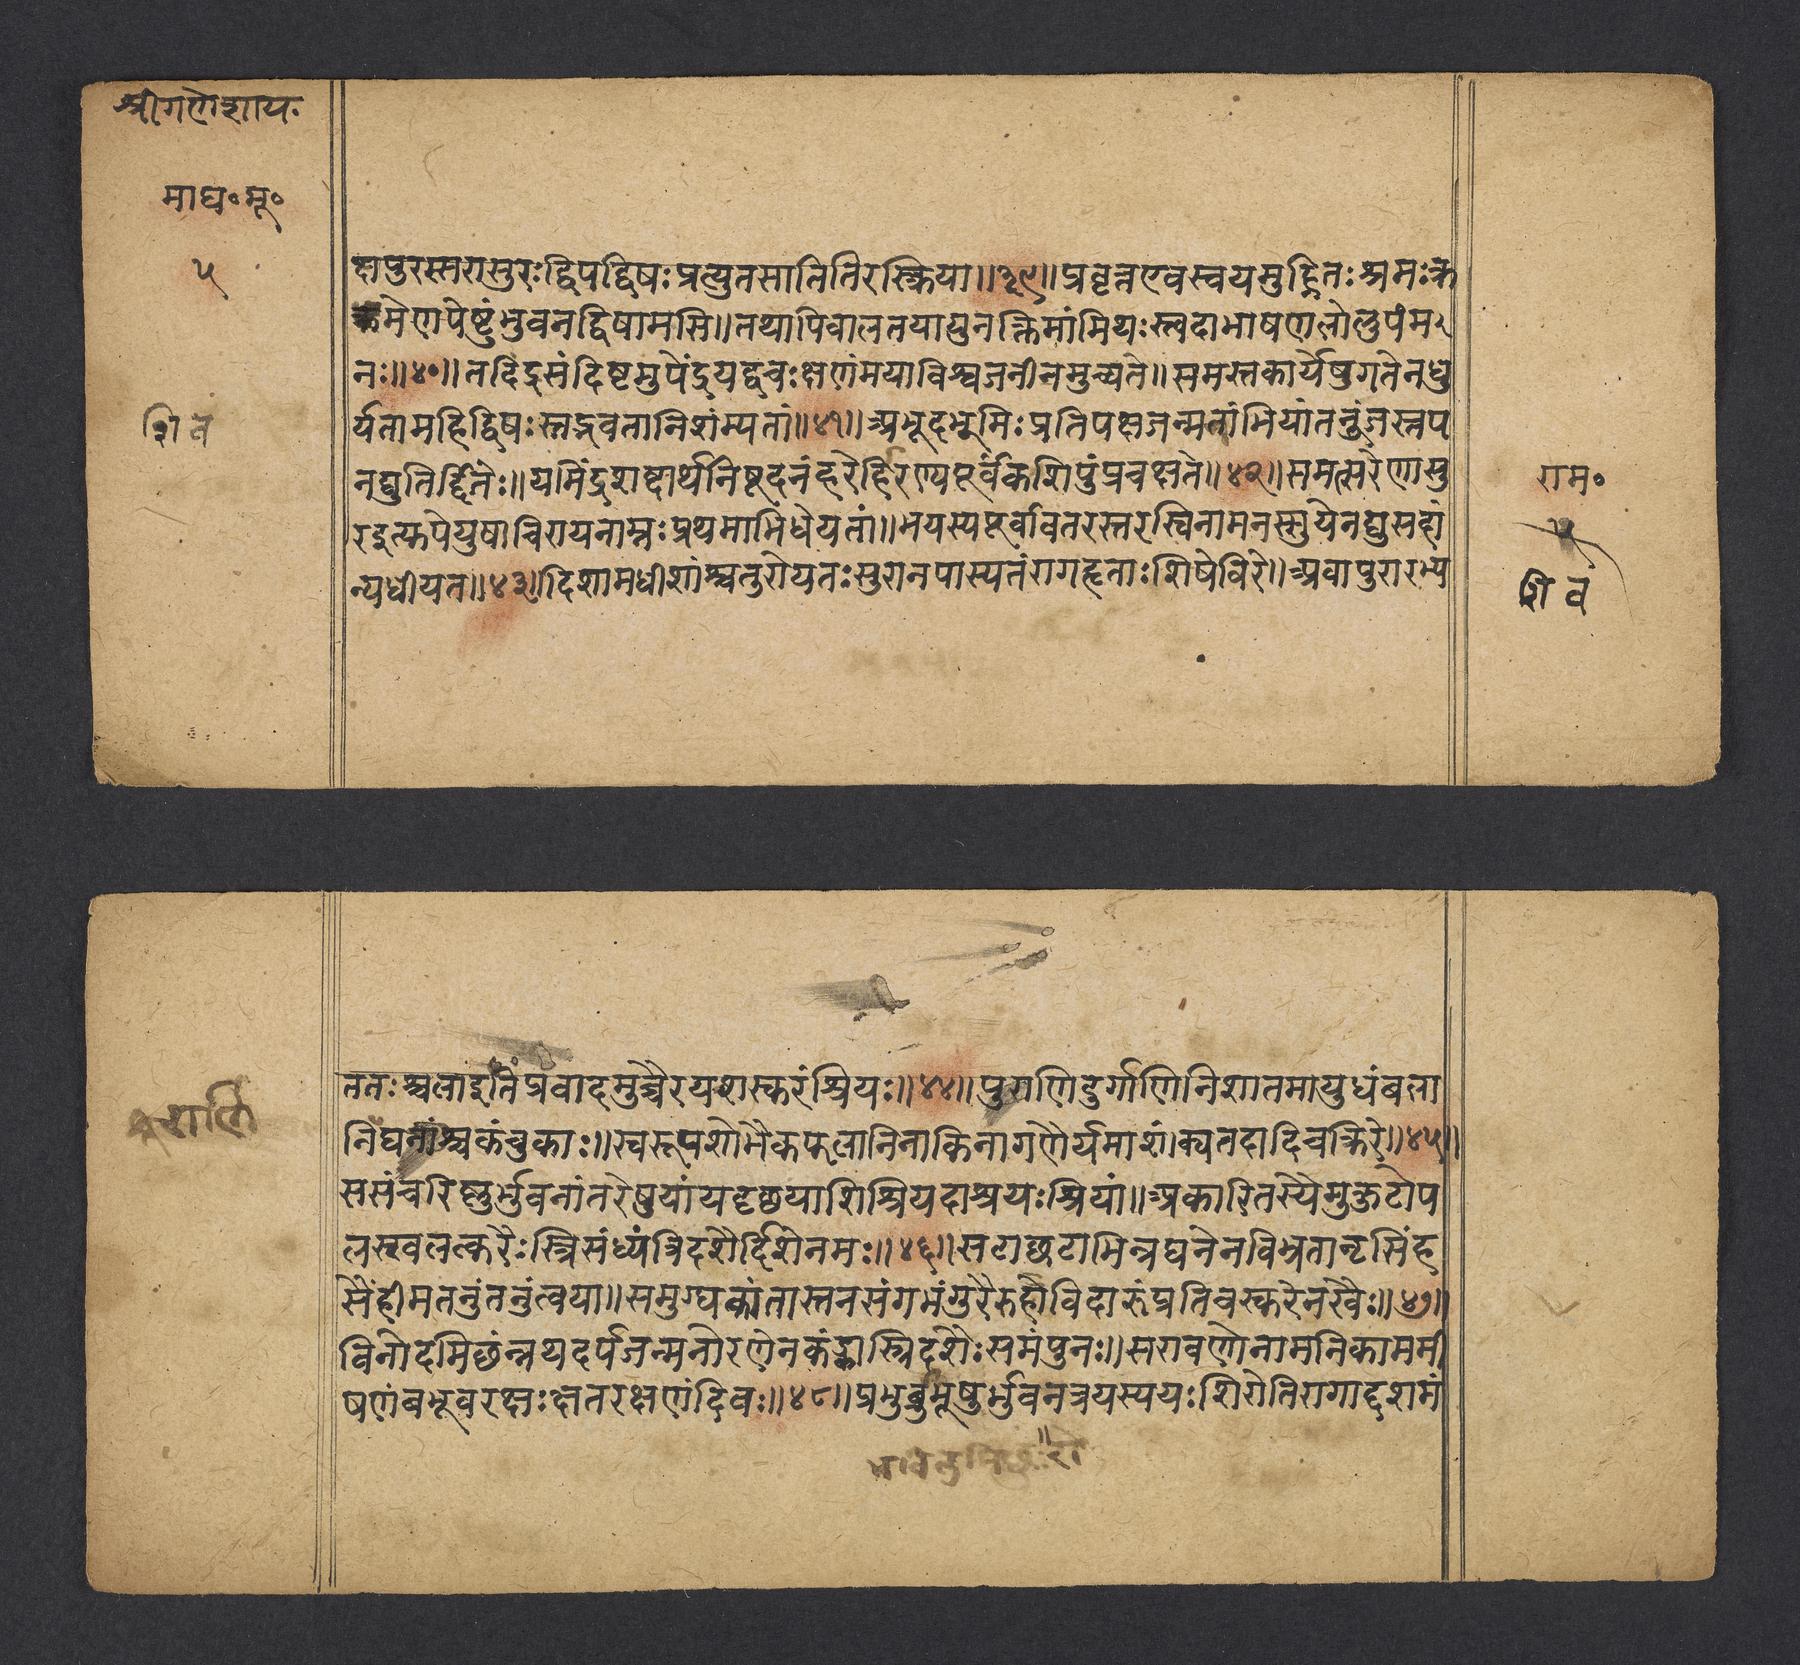 श्रीगणेशाय॰
माघ॰मू॰
५
शिव
दापुरस्सरासुरःद्विपद्विषःप्रत्युतसातितिरस्क्रिया॥३९॥प्रवृत्तएवस्वयमुह्नितःश्रमःक्र
क्रमेणपेष्टुंभुवनद्विषामसि॥तथापिवालतयायुनक्तिमांमिथःस्त्वदाभाषणलोलुपंम
नः॥४०॥तदिंद्रसंदिष्टमुपेंद्रयद्वचःक्षणंमयाविश्वजनीनमुच्यते॥समस्तकार्येषुगतेनधु
र्यतामहिद्विषःस्तद्भवतानिशंम्यतां॥४१॥अभूदभूमिःप्रतिपक्षजन्मनांभियांतनुंजस्तप
नद्युतिर्द्दितेः॥यमिंद्रशब्दार्थनिषूदनंहरेर्हिरण्यपूर्वंकशिपुंप्रचक्षते॥४२॥समत्सरेणासु
रइत्यपेयुषाचिरायनाम्नःप्रथमाभिधेयतां॥भयस्यपूर्वावतरस्तरस्विनामनस्सुयेनद्युसदां
न्यधीयत॥४३॥दिशामधीशांश्चतुरोयतःसुरानपास्यतंरागहृताःशिषेविरे॥अवापुरारभ्य
राम॰
५
शिव
ततःश्चलाइतिप्रवादमुच्चैरयशस्करंश्रियः॥४४॥पुराणिदुर्गाणिनिशातमायुधंबला
निघनाश्चकंचुकाः॥स्वरूपशोभैकफलानिनाकिनागणैर्यमाशंक्यतदादिचक्रिरे॥४५॥
ससंचरिष्णुर्भुवनांतरेषुयांयदृछयाशिश्रियदाश्रयःश्रियां॥अकारितस्यैमुकुटोप
लस्खलत्करैःस्त्रिसंध्यंत्रिदशैर्दिशेनमः॥४६॥सटाछटाभिन्नघनेनविभ्रतानृसिंह
सैंहीमतनुंतनुंत्वया॥समुग्घकांतास्तनसंगभंगुरैरुरुहौविदारुंप्रतिचस्करेनखैः॥४७॥
विनोदमिछंन्नथदर्पजन्मनोरणेनकंड्वास्त्रिदशैःसमंपुनः॥सरावणोनामनिकामभी
षणंबभूवरक्षःक्षतरक्षणंदिवः॥४८॥प्रभुर्बुभूषुर्भुवनत्रयस्ययःशिरोतिरागाद्दशमं